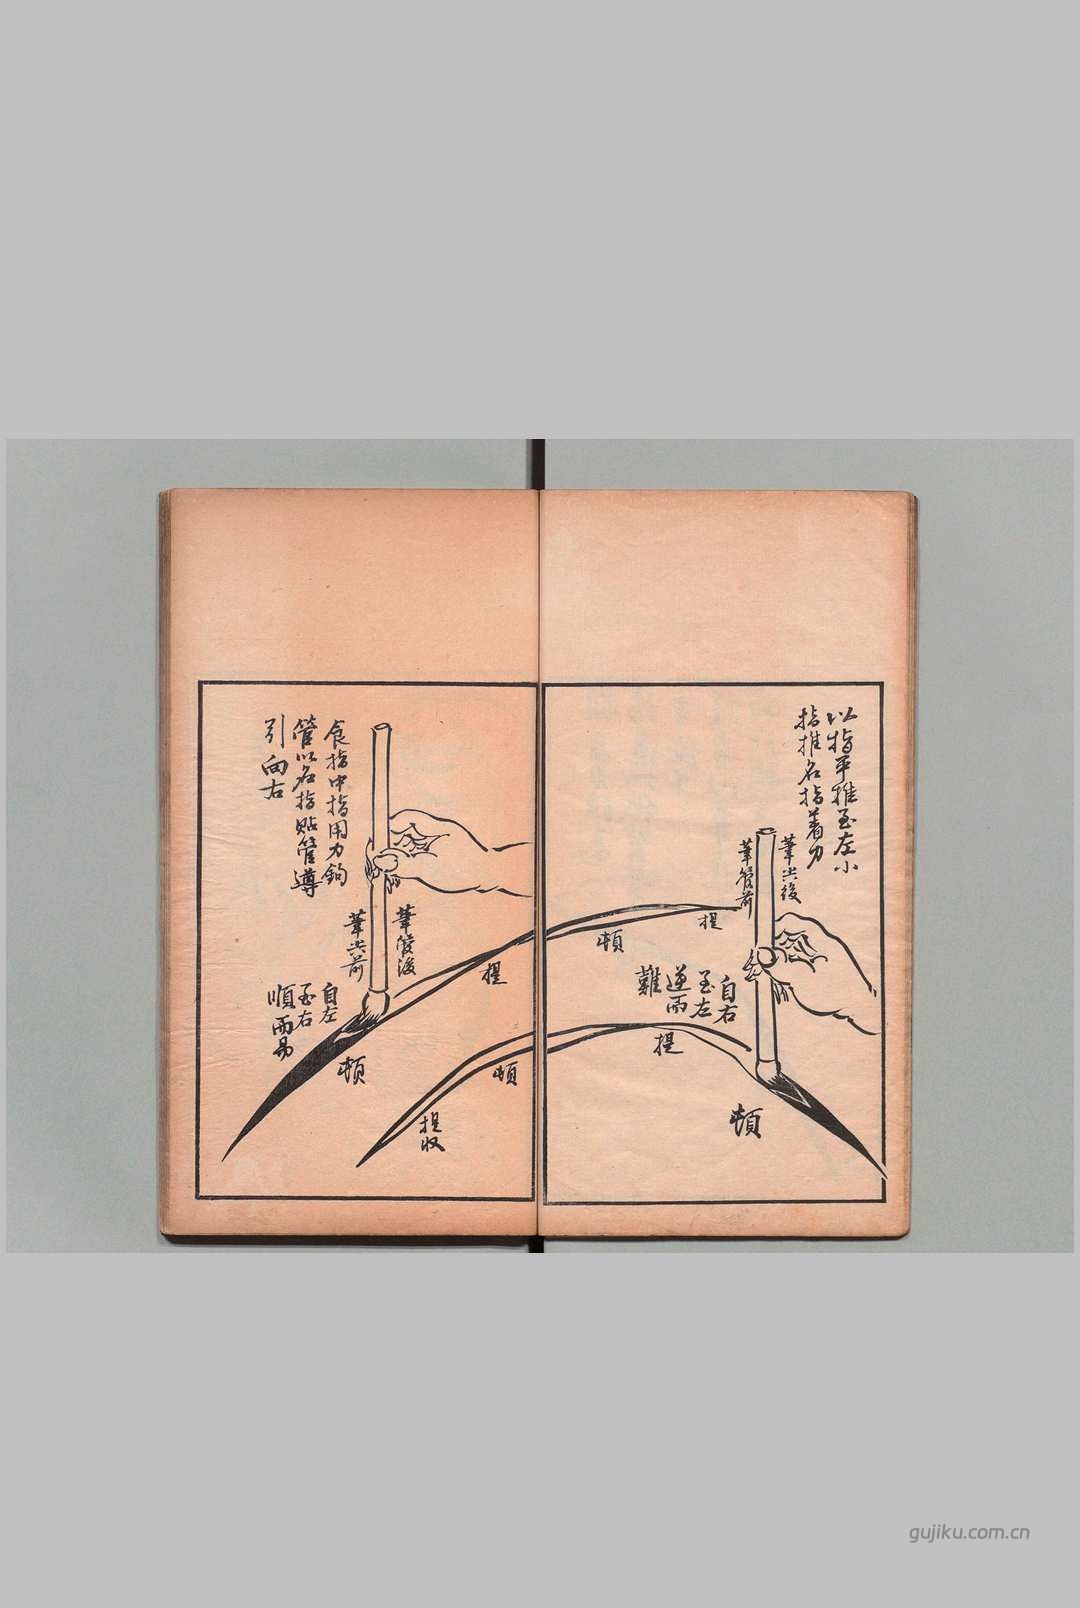 以指平推至左小
指推名指着力
筆尖後
筆管前
自右
至左
逆而
難
提
頓
提
頓
食指中指用力鉤
管以名指貼管導
引向右
筆管後
筆尖前
自左
至右
順而易
提
頓
頓
提收
gujiku.com.cn